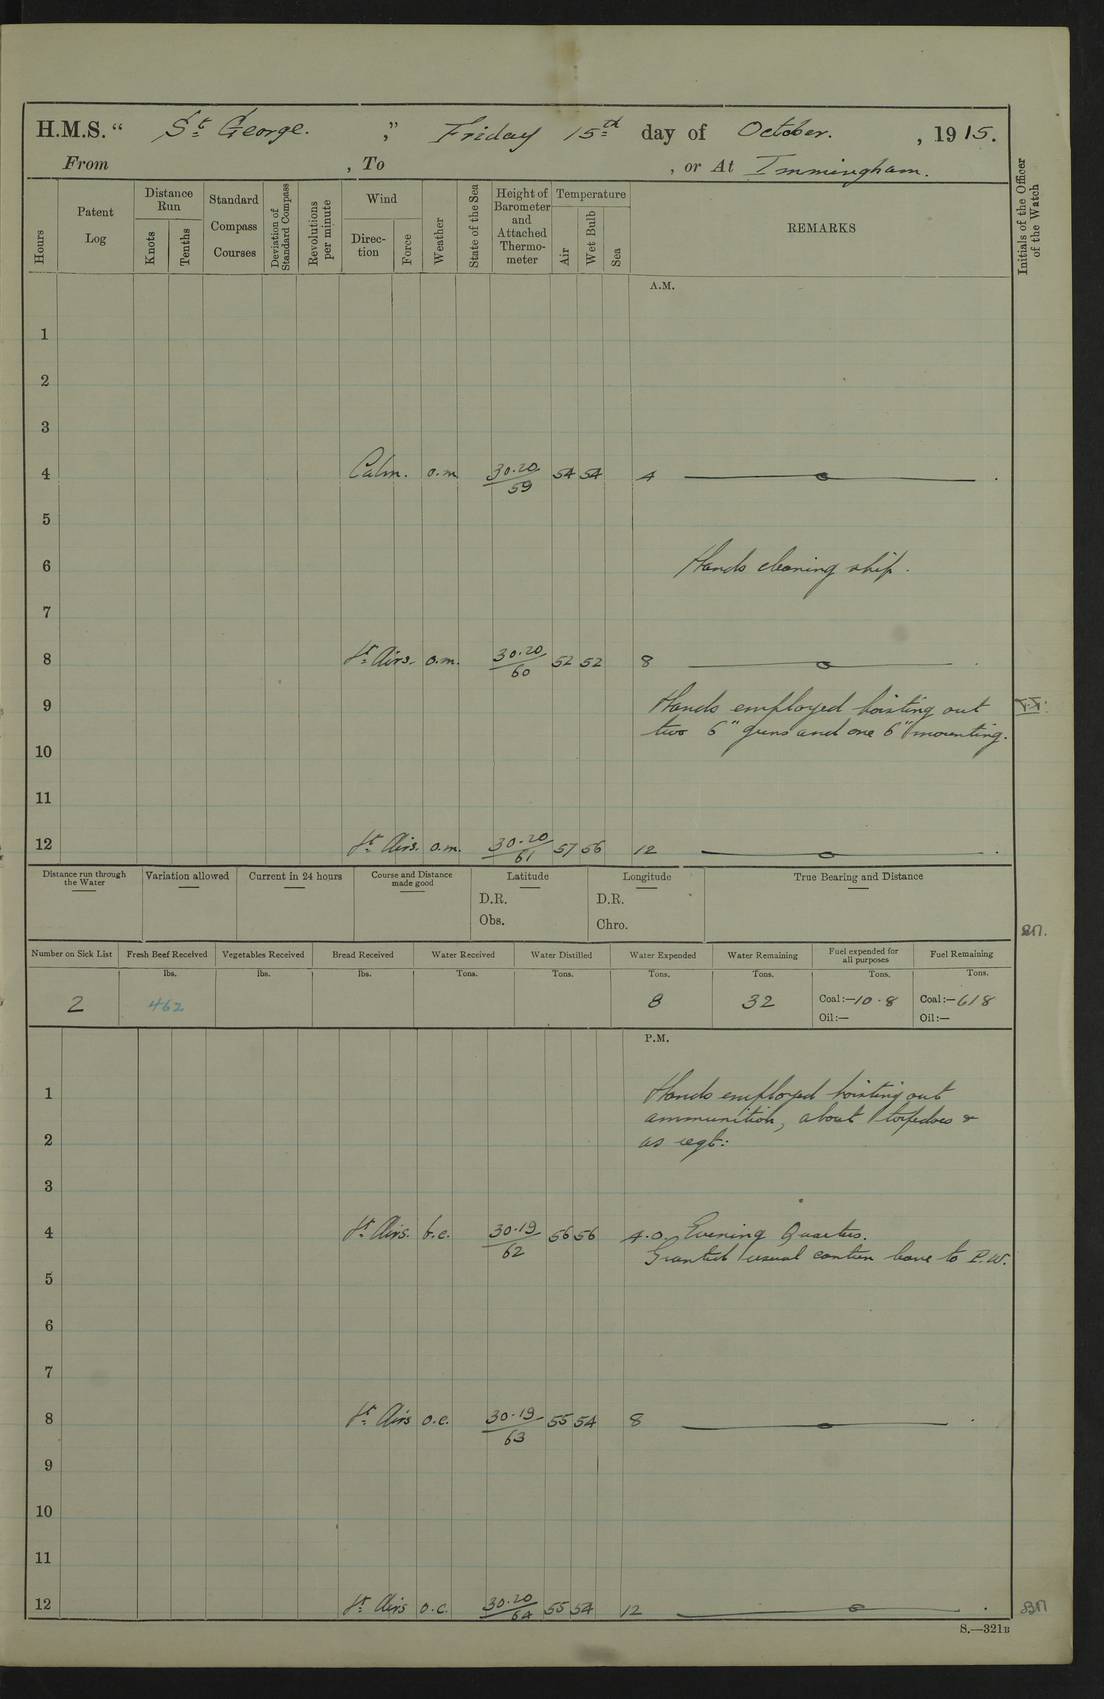 H.M.S. “ St George. ,” Friday 15th day of October. , 1915.
From , To , or At Immingham.
Hours
Patent Log
Distance Run
Knots
Tenths
Standard Compass Courses
Deviation of Standard Compass
Revolutions per minute
Wind
Direc-tion
Force
Weather
State of the Sea
Height of Barometer and Attached Thermo-meter
Temperature
Air
Wet Bulb
Sea
REMARKS
Initials of the Officer of the Watch
A.M.
1
2
3
4 Calm. o.m 30.20/59 54 54 4
5
6 Hands cleaning ship.
7
8 Lt Airs. o.m. 30.20/60 52 52 8
9 Hands employed hoisting out
two 6" guns and one 6" mounting.
10
11
12 Lt Airs. o.m. 30.20/61 57 56 12
Distance run through the Water
Variation allowed
Current in 24 hours
Course and Distance made good
Latitude
D.R.
Obs.
Longitude
D.R.
Chro.
True Bearing and Distance
Number on Sick List
Fresh Beef Received
Vegetables Received
Bread Received
Water Received
Water Distilled
Water Expended
Water Remaining
Fuel expended for all purposes
Fuel Remaining
lbs. lbs. lbs. Tons. Tons. Tons. Tons. Tons. Tons.
2 462 8 32 Coal:—10.8 Coal:—618
Oil:— Oil:—
P.M.
1 Hands employed hoisting out
ammunition, about torpedoes &
2 as reqt:
3
4 Lt Airs. b.c. 30.19/62 56 56 4.0. Evening Quarters.
Granted usual canteen leave to P.W.
5
6
7
8 Lt Airs o.c. 30.19/63 55 54 8
9
10
11
12 Lt Airs o.c. 30.20/64 55 54 12
S.—321B